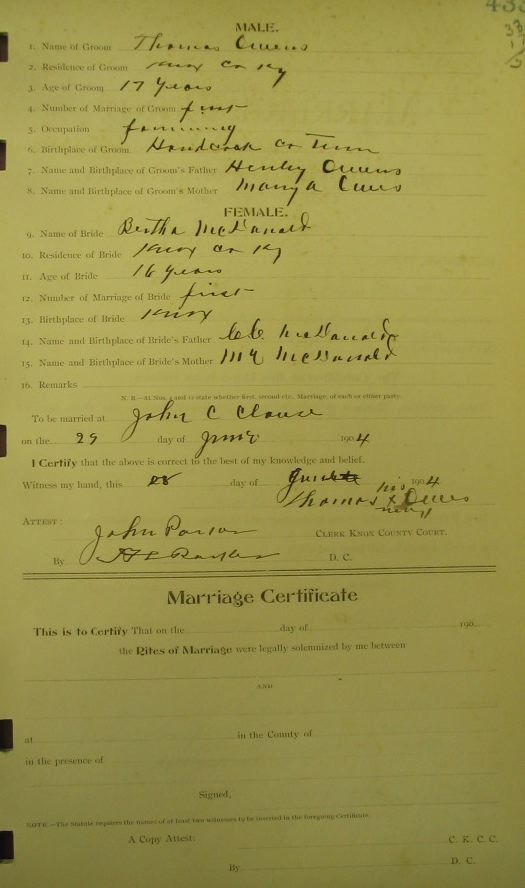 433
MALE.
1. Name of Groom Thomas Owens
2. Residence of Groom Knox Co Ky
3. Age of Groom 17 years
4. Number of Marriage of Groom first
5. Occupation farming
6. Birthplace of Groom Handcock Co Tenn
7. Name and Birthplace of Groom's Father Henley Owens
8. Name and Birthplace of Groom's Mother Owens
FEMALE.
9. Name of Bride Bertha McDonald
10. Residence of Bride Knox Co Ky
11. Age of Bride 16 years
12. Number of Marriage of Bride first
13. Birthplace of Bride Knox
14. Name and Birthplace of Bride's Father McDonald
15. Name and Birthplace of Bride's Mother McDonald
16. Remarks
N. B.—At Nos. 4 and 12 state whether first, second etc., Marriage, of each or either party.
To be married at John C Clouse
on the 29 day of June 1904
I Certify that the above is correct to the best of my knowledge and belief.
Witness my hand, this 28 day of June 1904
Thomas his x Owens
mark
ATTEST:
John Parson CLERK KNOX COUNTY COURT.
By D. C.
Marriage Certificate
This is to Certify That on the day of 190
the Rites of Marriage were legally solemnized by me between
AND
at in the County of
in the presence of
Signed,
NOTE.—The Statute requires the names of at least two witnesses to be inserted in the foregoing Certificate.
A Copy Attest: C. K. C. C.
By D. C.